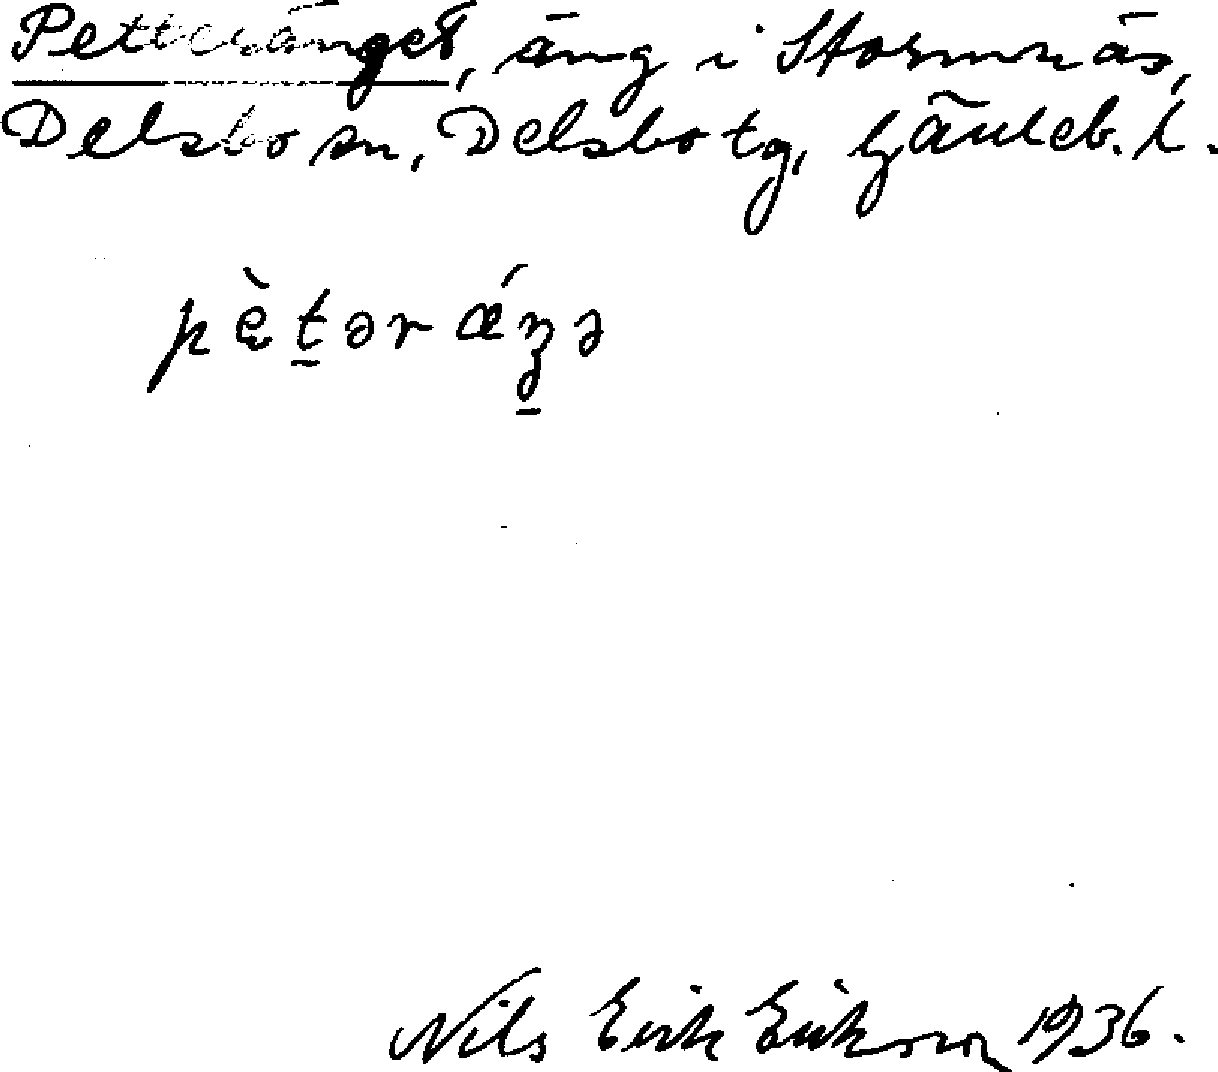 Petteränget, äng i Stormnäs,
Delsbo sn, Delsbo tg, Gävleb. l.
pètərǽŋə
Nils Erik Erikson 1936.